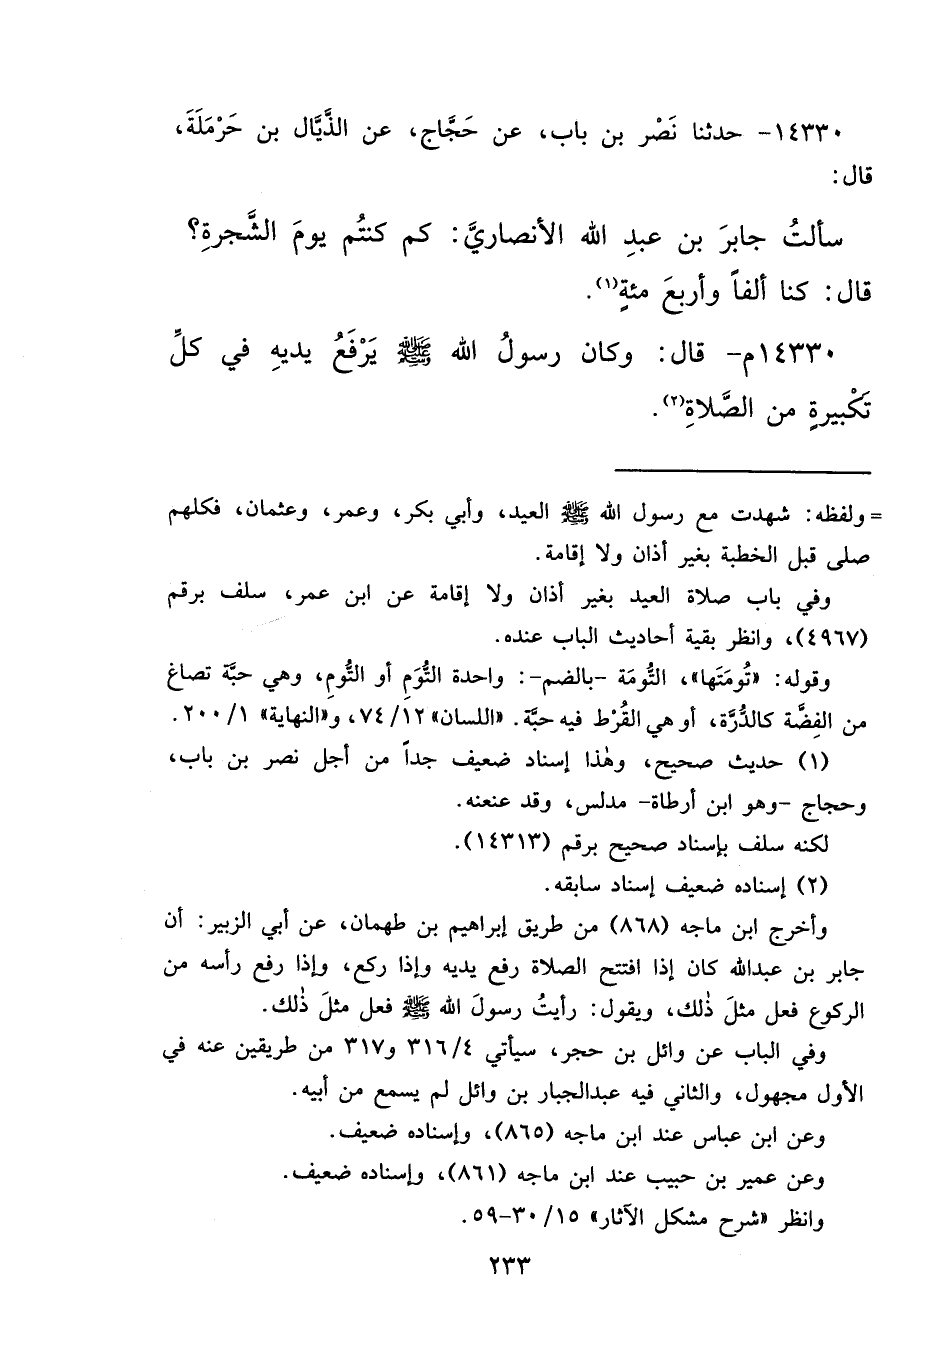 ١٤٣٣٠- حدثنا نَصْر بن باب، عن حَجَّاج، عن الذَّيَّال بن حَرْمَلَةَ،
قال:
سألتُ جابرَ بن عبدِ الله الأنصاريَّ: كم كنتُم يومَ الشَّجرةِ؟
قال: كنا ألفاً وأربعَ مئةٍ(١).
١٤٣٣٠م- قال: وكان رسولُ الله ﷺ يَرْفَعُ يديهِ في كلِّ
تَكْبيرةٍ من الصَّلاةِ(٢).
= ولفظه: شهدت مع رسول الله ﷺ العيد، وأبي بكر، وعمر، وعثمان، فكلهم
صلى قبل الخطبة بغير أذان ولا إقامة.
وفي باب صلاة العيد بغير أذان ولا إقامة عن ابن عمر، سلف برقم
(٤٩٦٧)، وانظر بقية أحاديث الباب عنده.
وقوله: «تُومَتَها»، التُّومَة -بالضم-: واحدة التُّوَمِ أو التُّومِ، وهي حبَّة تصاغ
من الفِضَّة كالدُّرَّة، أو هي القُرْط فيه حبَّة. «اللسان» ٧٤/١٢، و«النهاية» ٢٠٠/١.
(١) حديث صحيح، وهٰذا إسناد ضعيف جداً من أجل نصر بن باب،
وحجاج -وهو ابن أرطاة- مدلس، وقد عنعنه.
لكنه سلف بإسناد صحيح برقم (١٤٣١٣).
(٢) إسناده ضعيف إسناد سابقه.
وأخرج ابن ماجه (٨٦٨) من طريق إبراهيم بن طهمان، عن أبي الزبير: أن
جابر بن عبدالله كان إذا افتتح الصلاة رفع يديه وإذا ركع، وإذا رفع رأسه من
الركوع فعل مثلَ ذٰلك، ويقول: رأيتُ رسولَ الله ﷺ فعل مثلَ ذٰلك.
وفي الباب عن وائل بن حجر، سيأتي ٣١٦/٤ و٣١٧ من طريقين عنه في
الأول مجهول، والثاني فيه عبدالجبار بن وائل لم يسمع من أبيه.
وعن ابن عباس عند ابن ماجه (٨٦٥)، وإسناده ضعيف.
وعن عمير بن حبيب عند ابن ماجه (٨٦١)، وإسناده ضعيف.
وانظر «شرح مشكل الآثار» ١٥/ ٣٠-٥٩.
٢٣٣